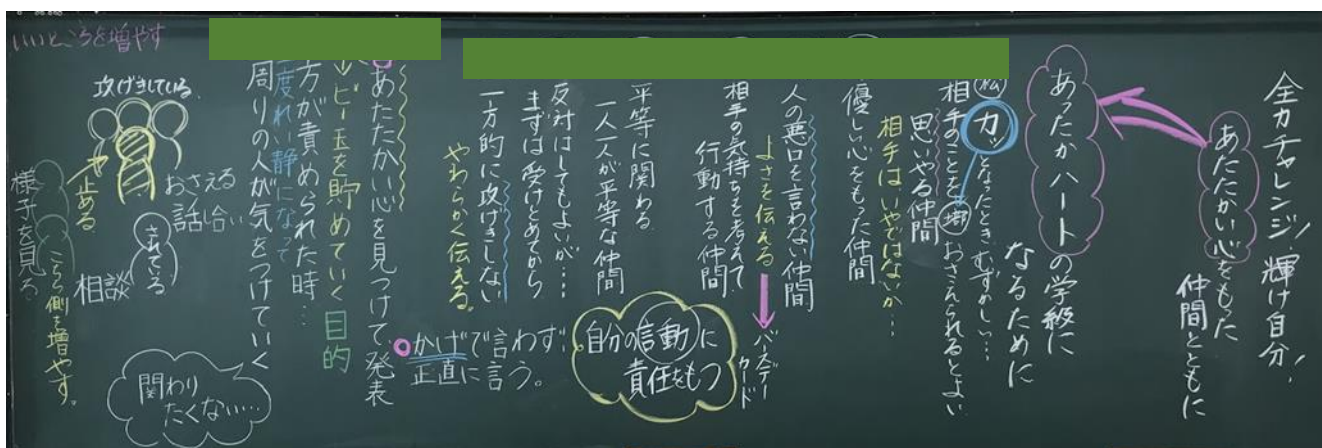 全力チャレンジ!輝け自分!
あたたかい心をもった
仲間とともに
あったかハートの学級に
なるために
カッとなったときむずかしい…
相手のことを
おさえられるとよい
思いやる仲間
相手は、いやではないか…
優しい心をもった仲間
人の悪口を言わない仲間
よさを伝える
バースデーカード
相手の気持ちを考えて
行動する仲間
自分の言動に
責任をもつ
平等に関わる
一人一人が平等な仲間
反対はしてもよいが…
まずは受けとめてから
一方的に攻げきしない
やわらかく伝える。
かげで言わず
正直に言う。
あたたかい心を見つけて発表
ビー玉を貯めていく目的
方が責められた時…
度れい静になって
周りの人が気をつけていく
関わり
たくない…
いいところを増やす
攻げきしている
止める
おさえる
話し合い
されている
相談
様子を見る
こちら側を増やす。